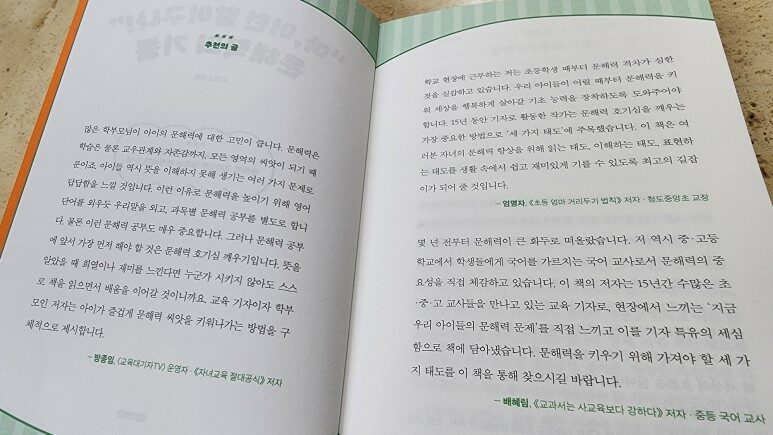 추천의 글
많은 학부모님이 아이의 문해력에 대한 고민이 큽니다. 문해력은
학습은 물론 교우관계와 자존감까지, 모든 영역의 씨앗이 되기 때
문이죠. 아이들 역시 뜻을 이해하지 못해 생기는 여러 가지 문제로
답답함을 느낄 것입니다. 이런 이유로 문해력을 높이기 위해 영어
단어를 외우듯 우리말을 외고, 과목별 문해력 공부를 별도로 합니
다. 물론 이런 문해력 공부도 매우 중요합니다. 그러나 문해력 공부
에 앞서 가장 먼저 해야 할 것은 문해력 호기심 깨우기입니다. 뜻을
알았을 때 희열이나 재미를 느낀다면 누군가 시키지 않아도 스스
로 책을 읽으면서 배움을 이어갈 것이니까요. 교육 기자이자 학부
모인 저자는 아이가 즐겁게 문해력 씨앗을 키워나가는 방법을 구
체적으로 제시합니다.
– 방종임, 〈교육대기자TV〉 운영자·《자녀교육 절대공식》 저자
학교 현장에 근무하는 저는 초등학생 때부터 문해력 격차가 심한
것을 실감하고 있습니다. 우리 아이들이 어릴 때부터 문해력을 키
워 세상을 행복하게 살아갈 기초 능력을 장착하도록 도와주어야
합니다. 15년 동안 기자로 활동한 작가는 문해력 호기심을 깨우는
가장 중요한 방법으로 '세 가지 태도'에 주목했습니다. 이 책은 여
러분 자녀의 문해력 향상을 위해 읽는 태도, 이해하는 태도, 표현하
는 태도를 생활 속에서 쉽고 재미있게 기를 수 있도록 최고의 길잡
이가 되어 줄 것입니다.
– 엄명자, 《초등 엄마 거리두기 법칙》 저자·청도중앙초 교장
몇 년 전부터 문해력이 큰 화두로 떠올랐습니다. 저 역시 중·고등
학교에서 학생들에게 국어를 가르치는 국어 교사로서 문해력의 중
요성을 직접 체감하고 있습니다. 이 책의 저자는 15년간 수많은 초
·중·고 교사들을 만나고 있는 교육 기자로, 현장에서 느끼는 '지금
우리 아이들의 문해력 문제'를 직접 느끼고 이를 기자 특유의 세심
함으로 책에 담아냈습니다. 문해력을 키우기 위해 가져야 할 세 가
지 태도를 이 책을 통해 찾으시길 바랍니다.
– 배혜림, 《교과서는 사교육보다 강하다》 저자·중등 국어 교사